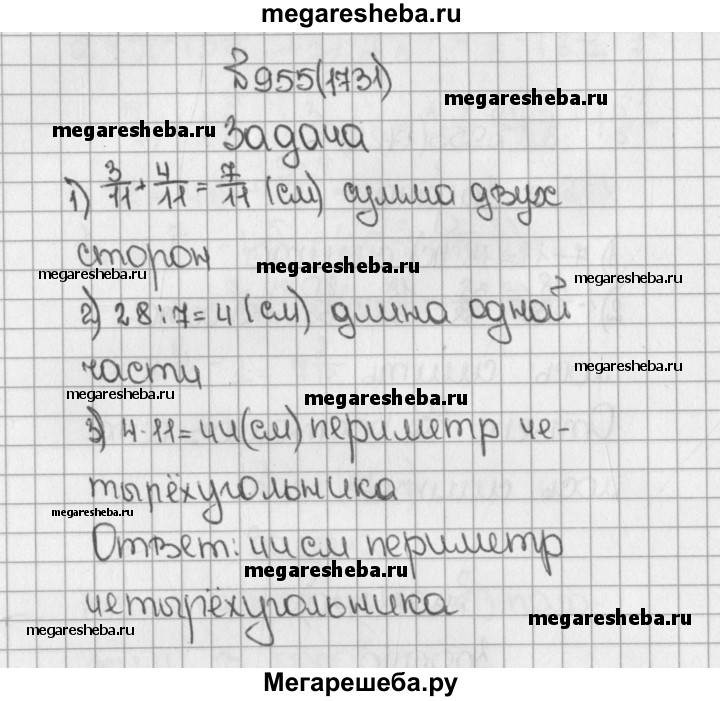 megaresheba.ru
№955(1731)
megaresheba.ru
megaresheba.ru
Задача
1) 3/11 + 4/11 = 7/11 (см) сумма двух
сторон
megaresheba.ru
megaresheba.ru
2) 28:7=4 (см) длина одной
megaresheba.ru
части
megaresheba.ru
megaresheba.ru
3) 4·11=44(см) периметр че-
тырёхугольника
megaresheba.ru
Ответ: 44 см периметр
megaresheba.ru
четырёхугольника
megaresheba.ru
megaresheba.ru
Мегарешеба.ру